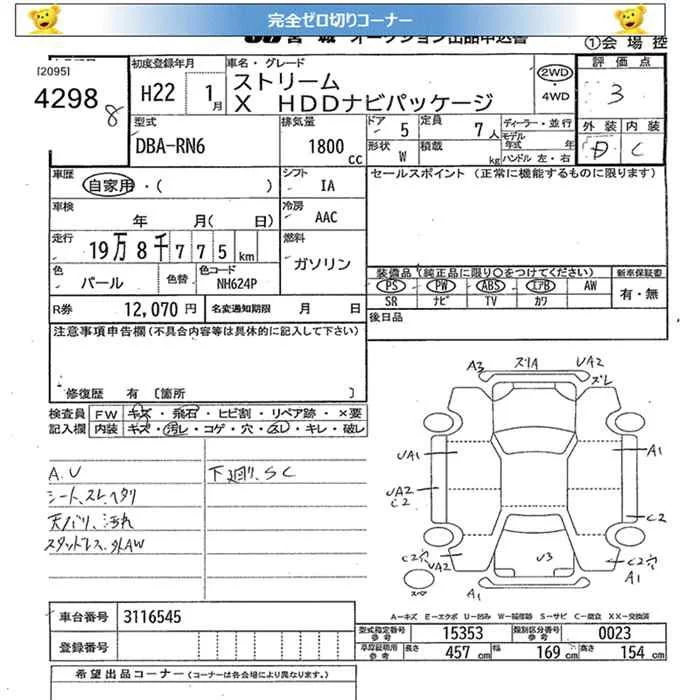 完全ゼロ切りコーナー
JU宮城 オークション出品申込書
①会場控
[2095]
4298
8
初度登録年月
H22 1月
車名・グレード
ストリーム
X HDDナビパッケージ
2WD
・
4WD
評価点
3
外装 内装
D C
型式
DBA-RN6
排気量
1800 cc
ドア 5
定員 7人
形状 W
積載 kg
ディーラー・並行
モデル年式 年
ハンドル 左・右
車歴
自家用・( )
シフト IA
セールスポイント(正常に機能するものに限ります)
車検
年 月( 日)
冷房 AAC
走行
19万8千775km
燃料
ガソリン
色
パール
色替
色コード
NH624P
装備品(純正品に限り○をつけてください)
新車保証書
PS PW ABS エアB AW
有・無
SR ナビ TV カワ
R券 12,070円
名変通知期限 月 日
後日品
注意事項申告欄(不具合内容等は具体的に記入して下さい)
修復歴 有 〔箇所 〕
検査員 FW キズ・飛石・ヒビ割・リペア跡・×要
記入欄 内装 キズ・汚レ・コゲ・穴・スレ・キレ・破レ
A.U
下廻り、SC
シート、スレ、ヘタリ
天バリ、汚れ
スタッドレス、外AW
A3 ズリA UA2
ズレ
UA1 A1
UA2
C2
C2
C2穴 UA2
U3
C2穴
A1
A1
スペア
A=キズ E=エクボ U=凹み W=補修跡 S=サビ C=腐食 XX=交換済
車台番号 3116545
登録番号
型式指定番号 参考 15353
類別区分番号 参考 0023
車庫証明用 参考
長さ 457cm
幅 169cm
高さ 154cm
希望出品コーナー(コーナーは各会場により異なります。)